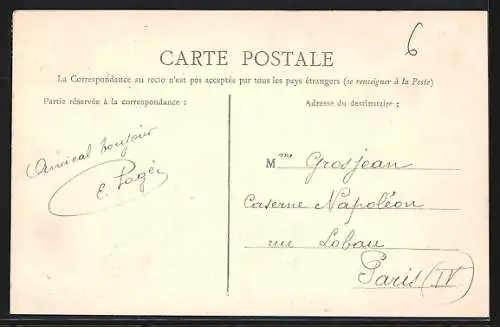 6
CARTE POSTALE
La Correspondance au recto n'est pas acceptée par tous les pays étrangers (se renseigner à la Poste)
Partie réservée à la correspondance :
Adresse du destinataire :
Amical bonjour
E. Pagès
Mme Grosjean
Caserne Napoléon
rue Lobau
Paris (IV)